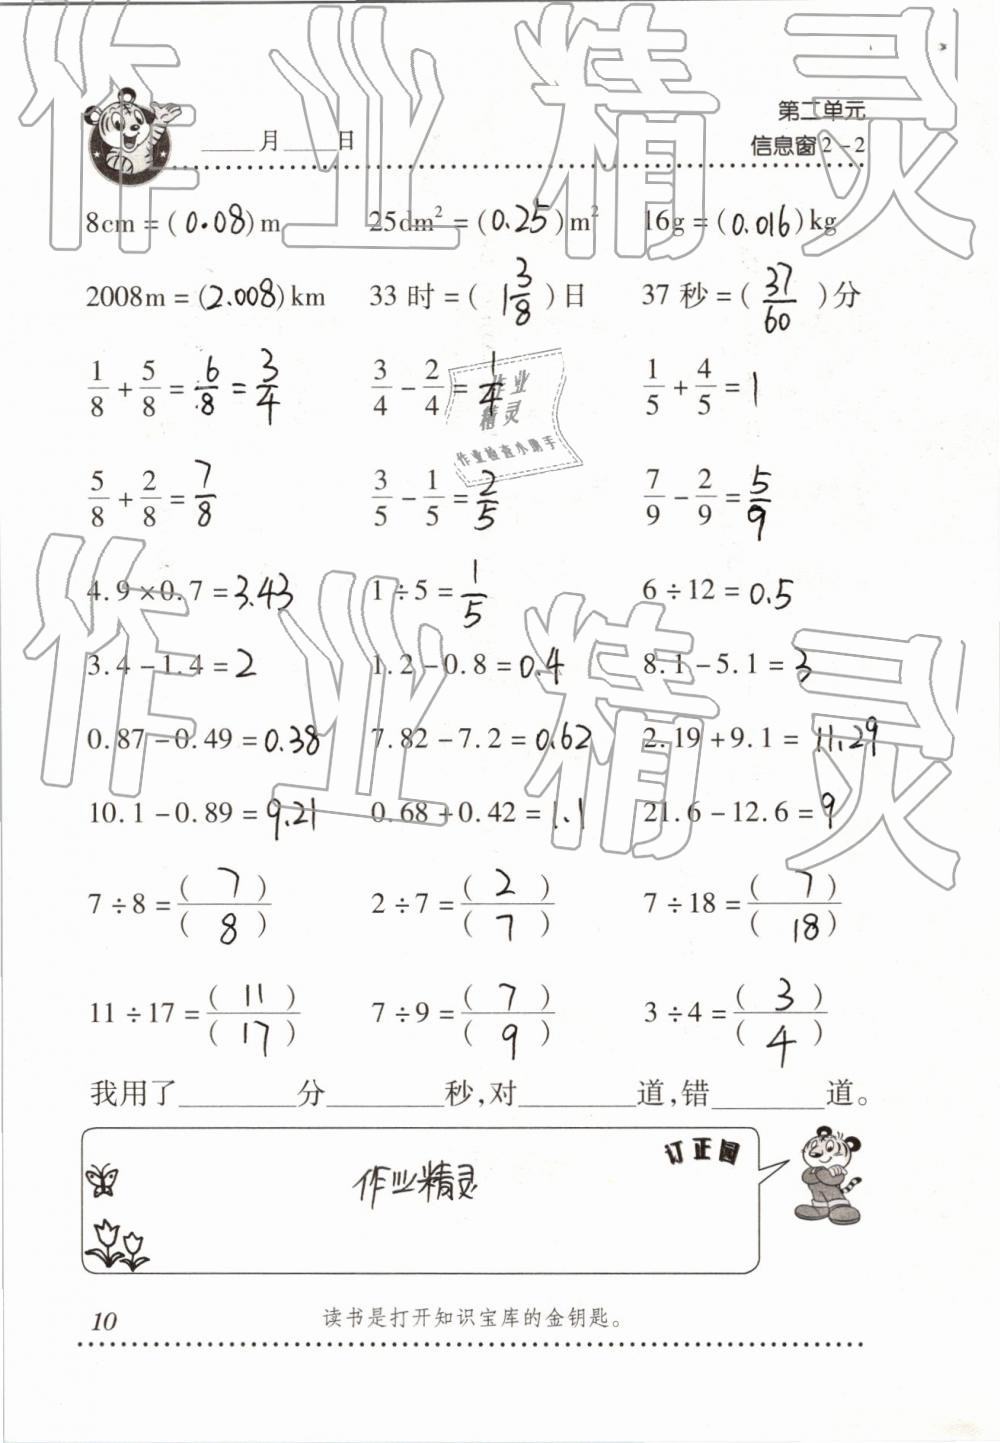 作业精灵
第二单元
____月____日 信息窗2-2
8cm=(0.08)m 25dm²=(0.25)m² 16g=(0.016)kg
2008m=(2.008)km 33时=(1 3/8)日 37秒=(37/60)分
1/8+5/8=6/8=3/4 3/4-2/4=1/4 1/5+4/5=1
作业
精灵
作业检查小助手
5/8+2/8=7/8 3/5-1/5=2/5 7/9-2/9=5/9
4.9×0.7=3.43 1÷5=1/5 6÷12=0.5
作业精灵
3.4-1.4=2 1.2-0.8=0.4 8.1-5.1=3
0.87-0.49=0.38 7.82-7.2=0.62 2.19+9.1=11.29
10.1-0.89=9.21 0.68+0.42=1.1 21.6-12.6=9
7÷8=(7)/(8) 2÷7=(2)/(7) 7÷18=(7)/(18)
11÷17=(11)/(17) 7÷9=(7)/(9) 3÷4=(3)/(4)
我用了________分________秒,对________道,错________道。
订正园
作业精灵
10 读书是打开知识宝库的金钥匙。